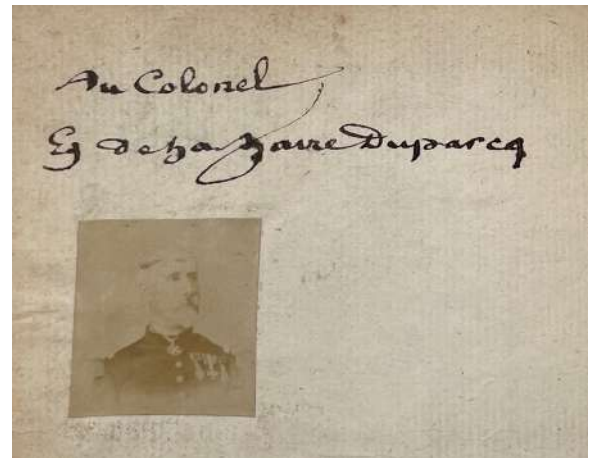 Au Colonel
Ed de La Barre Duparcq